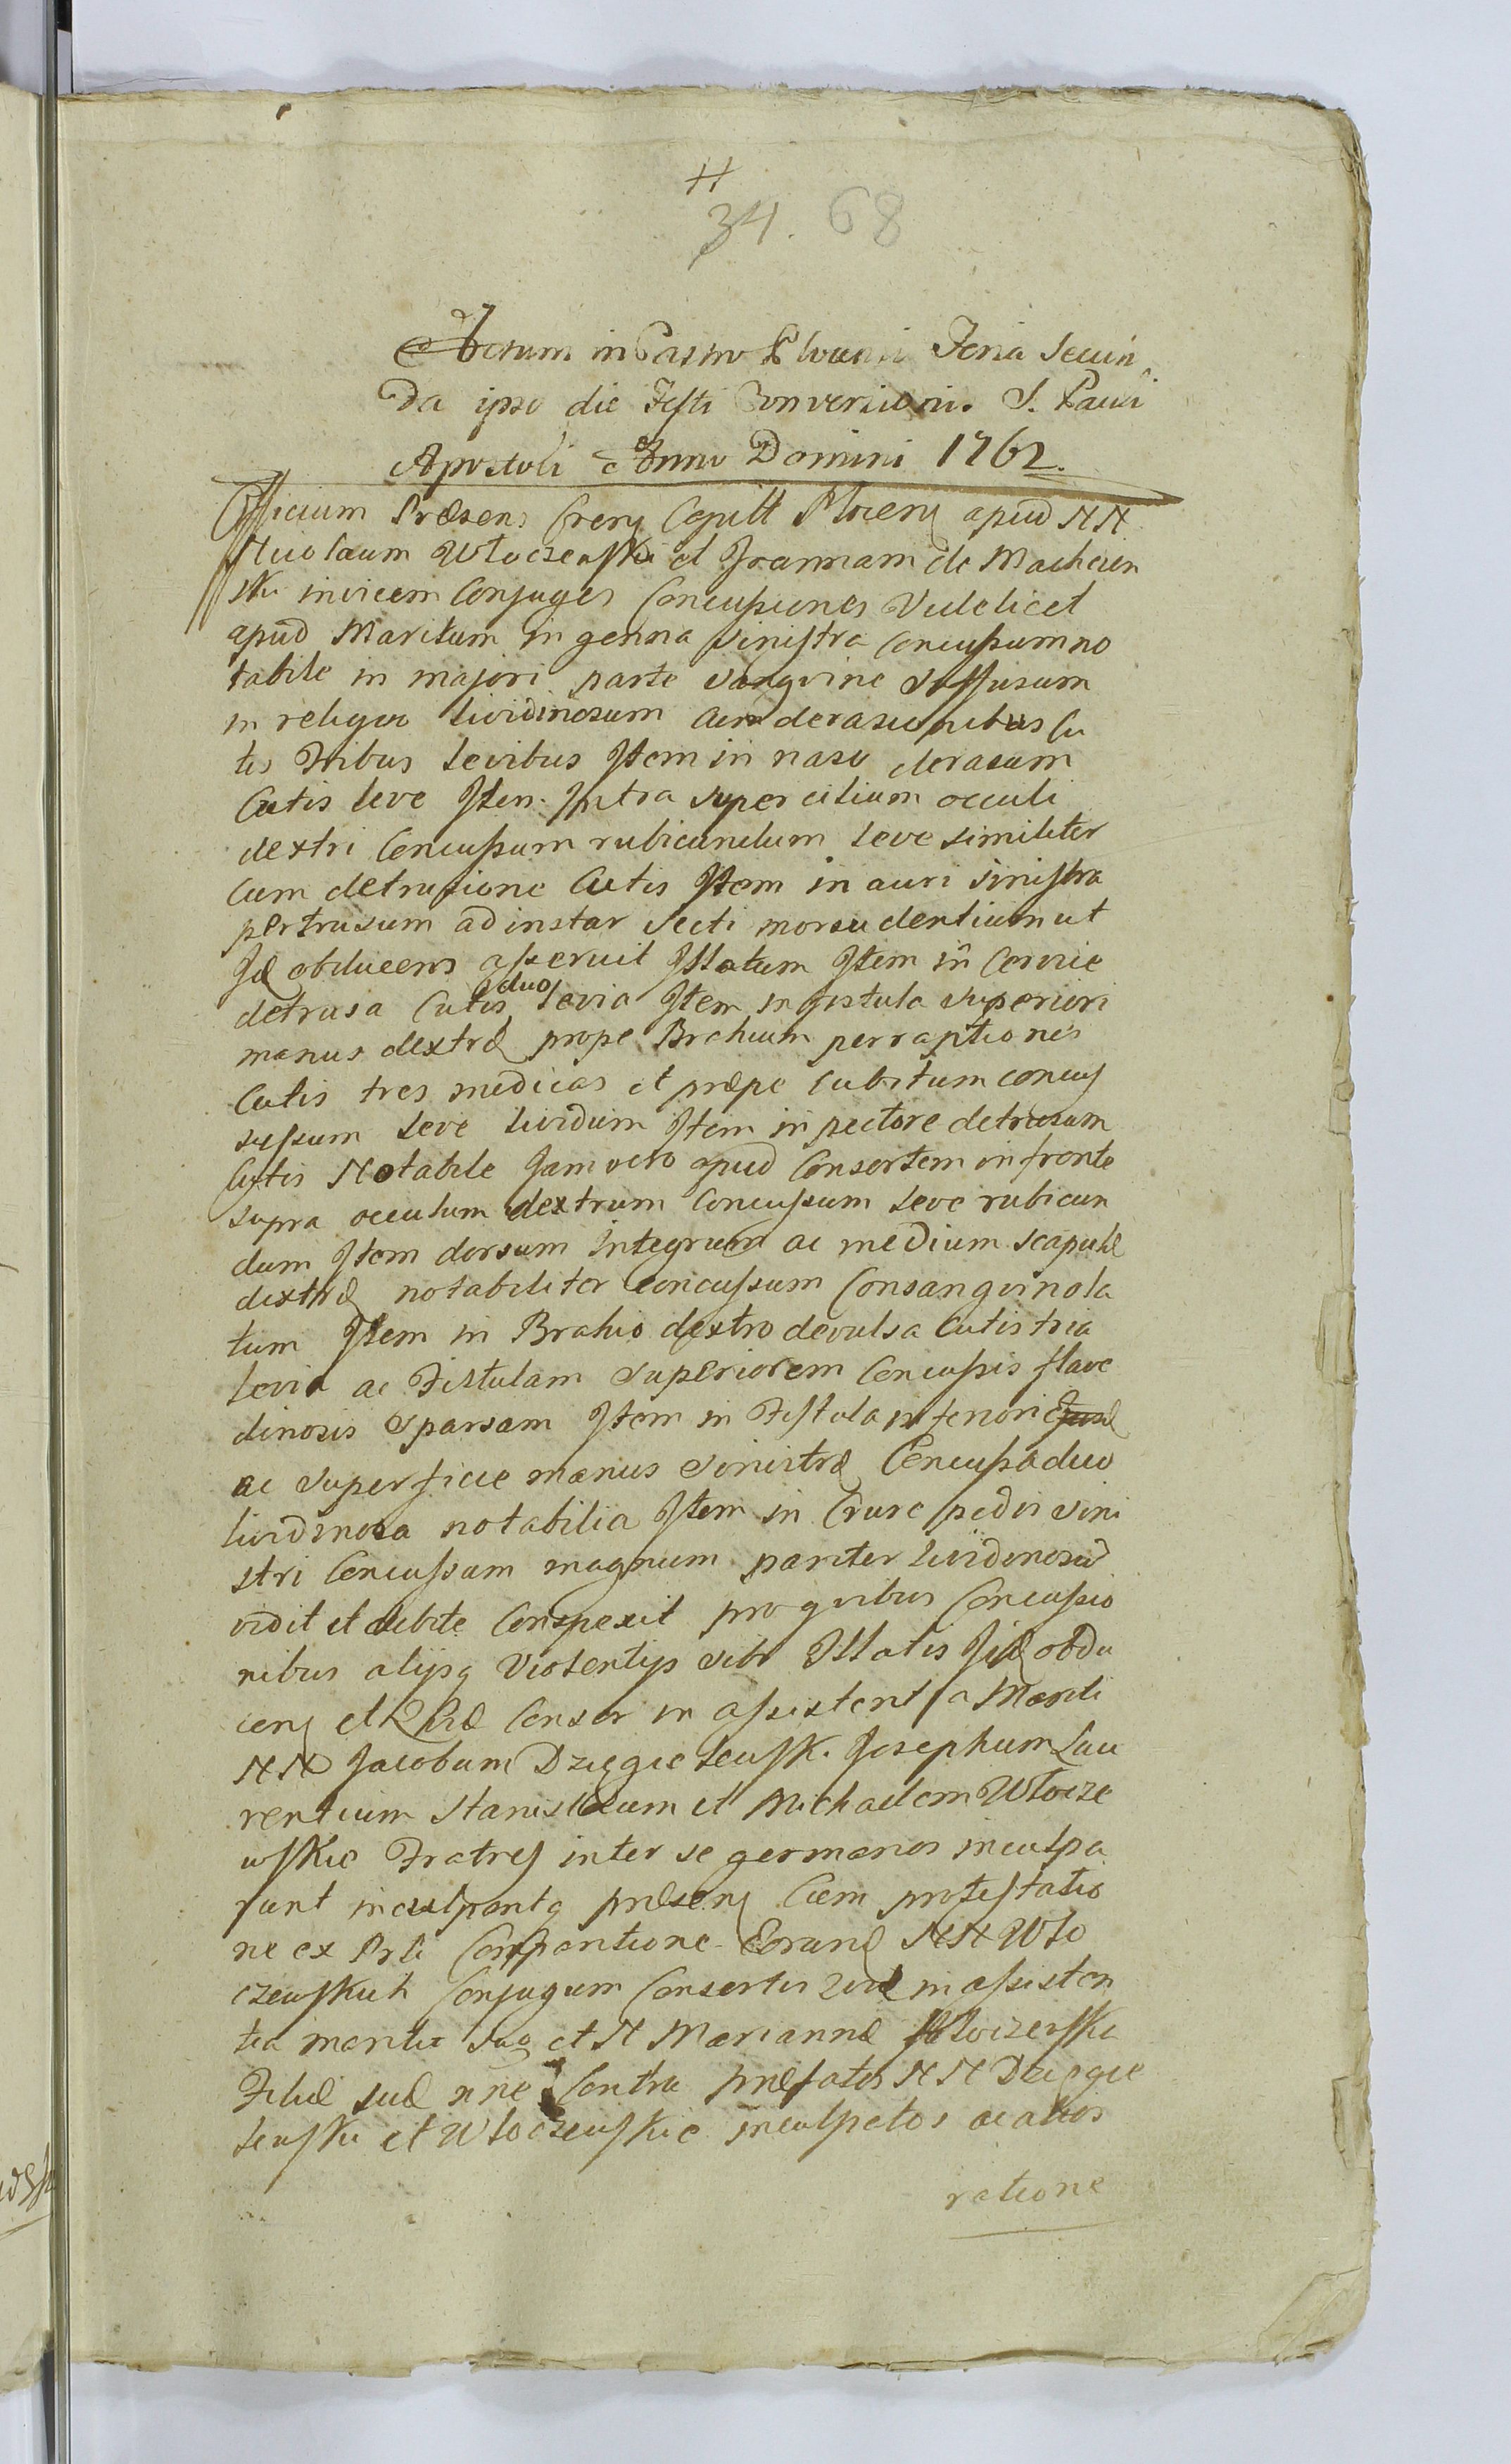 H
34. 68
Actum in Castro Plocensi Feria Secun
da ipso die Festi Conversionis S. Pauli
Apostoli Anno Domini 1762.
Officium Præsens Crens Capitt Plocens apud NN
Nicolaum Włoczewski et Joannam de Machcien
ski invicem Conjuges Concussiones Videlicet
apud Maritum in genna sinistra concussum no
tabile in majori parte sangvine suffusum
in reliquo lividinosum cum derasionibus Cu
tis Tribus levibus Item in naso derasum
Cutis leve Item Intra supercilium occuli
dextri Concussum rubicundum leve similiter
cum detrusione Cutis Item in auri sinistra
pertrusum ad instar secti morsu dentium ut
Id obducens asseruit Illatum Item in Cervice
detrasa Cutis duo levia Item in fistula superiori
manus dextræ prope Brahium perraptiones
Cutis tres medicas et præpe Cubitum concus
sussum leve lividum Item in pectore detrusum
Cutis Notabile Jam vero apud Consortem in fronte
supra occulum dextrum Concussum leve rubicun
dum Item dorsum Integrum ac medium scapulæ
dextræ notabiliter concussum Consangvinola
tum Item in Brahio dextro devulsa Cutis tria
levia ac Fistulam superiorem Concussis flave
dinosis Sparsam Item in Fistula inferiori
ac superficie manus sinistræ Concussa duo
lividinosa notabilia Item in Crure pedis sini
stri Concussam magnum pariter lividinosu
vidit et debite Conspexit pro qvibus Concussio
nibus alijsq Violentijs sibi Illatis Iid obdu
cens et Consor in assistentia Mariti
NN Jacobum Dzięgielewsk. Josephum Lau
rentium Stanislaum et Michaelem Włocze
wskie Fratres inter se germanos inculpa
runt inculpantq præsens Cum protestatio
ne ex Prti Compartione Eorund NN Wło
czewskich Conjugum Consortis in assisten
tia mariti sui et N Mariannæ Włoczewska
Filiæ suæ nne Contra præfatos NN Dzięgie
lewski et Włoczewskie inculpatos ac alios
ratione